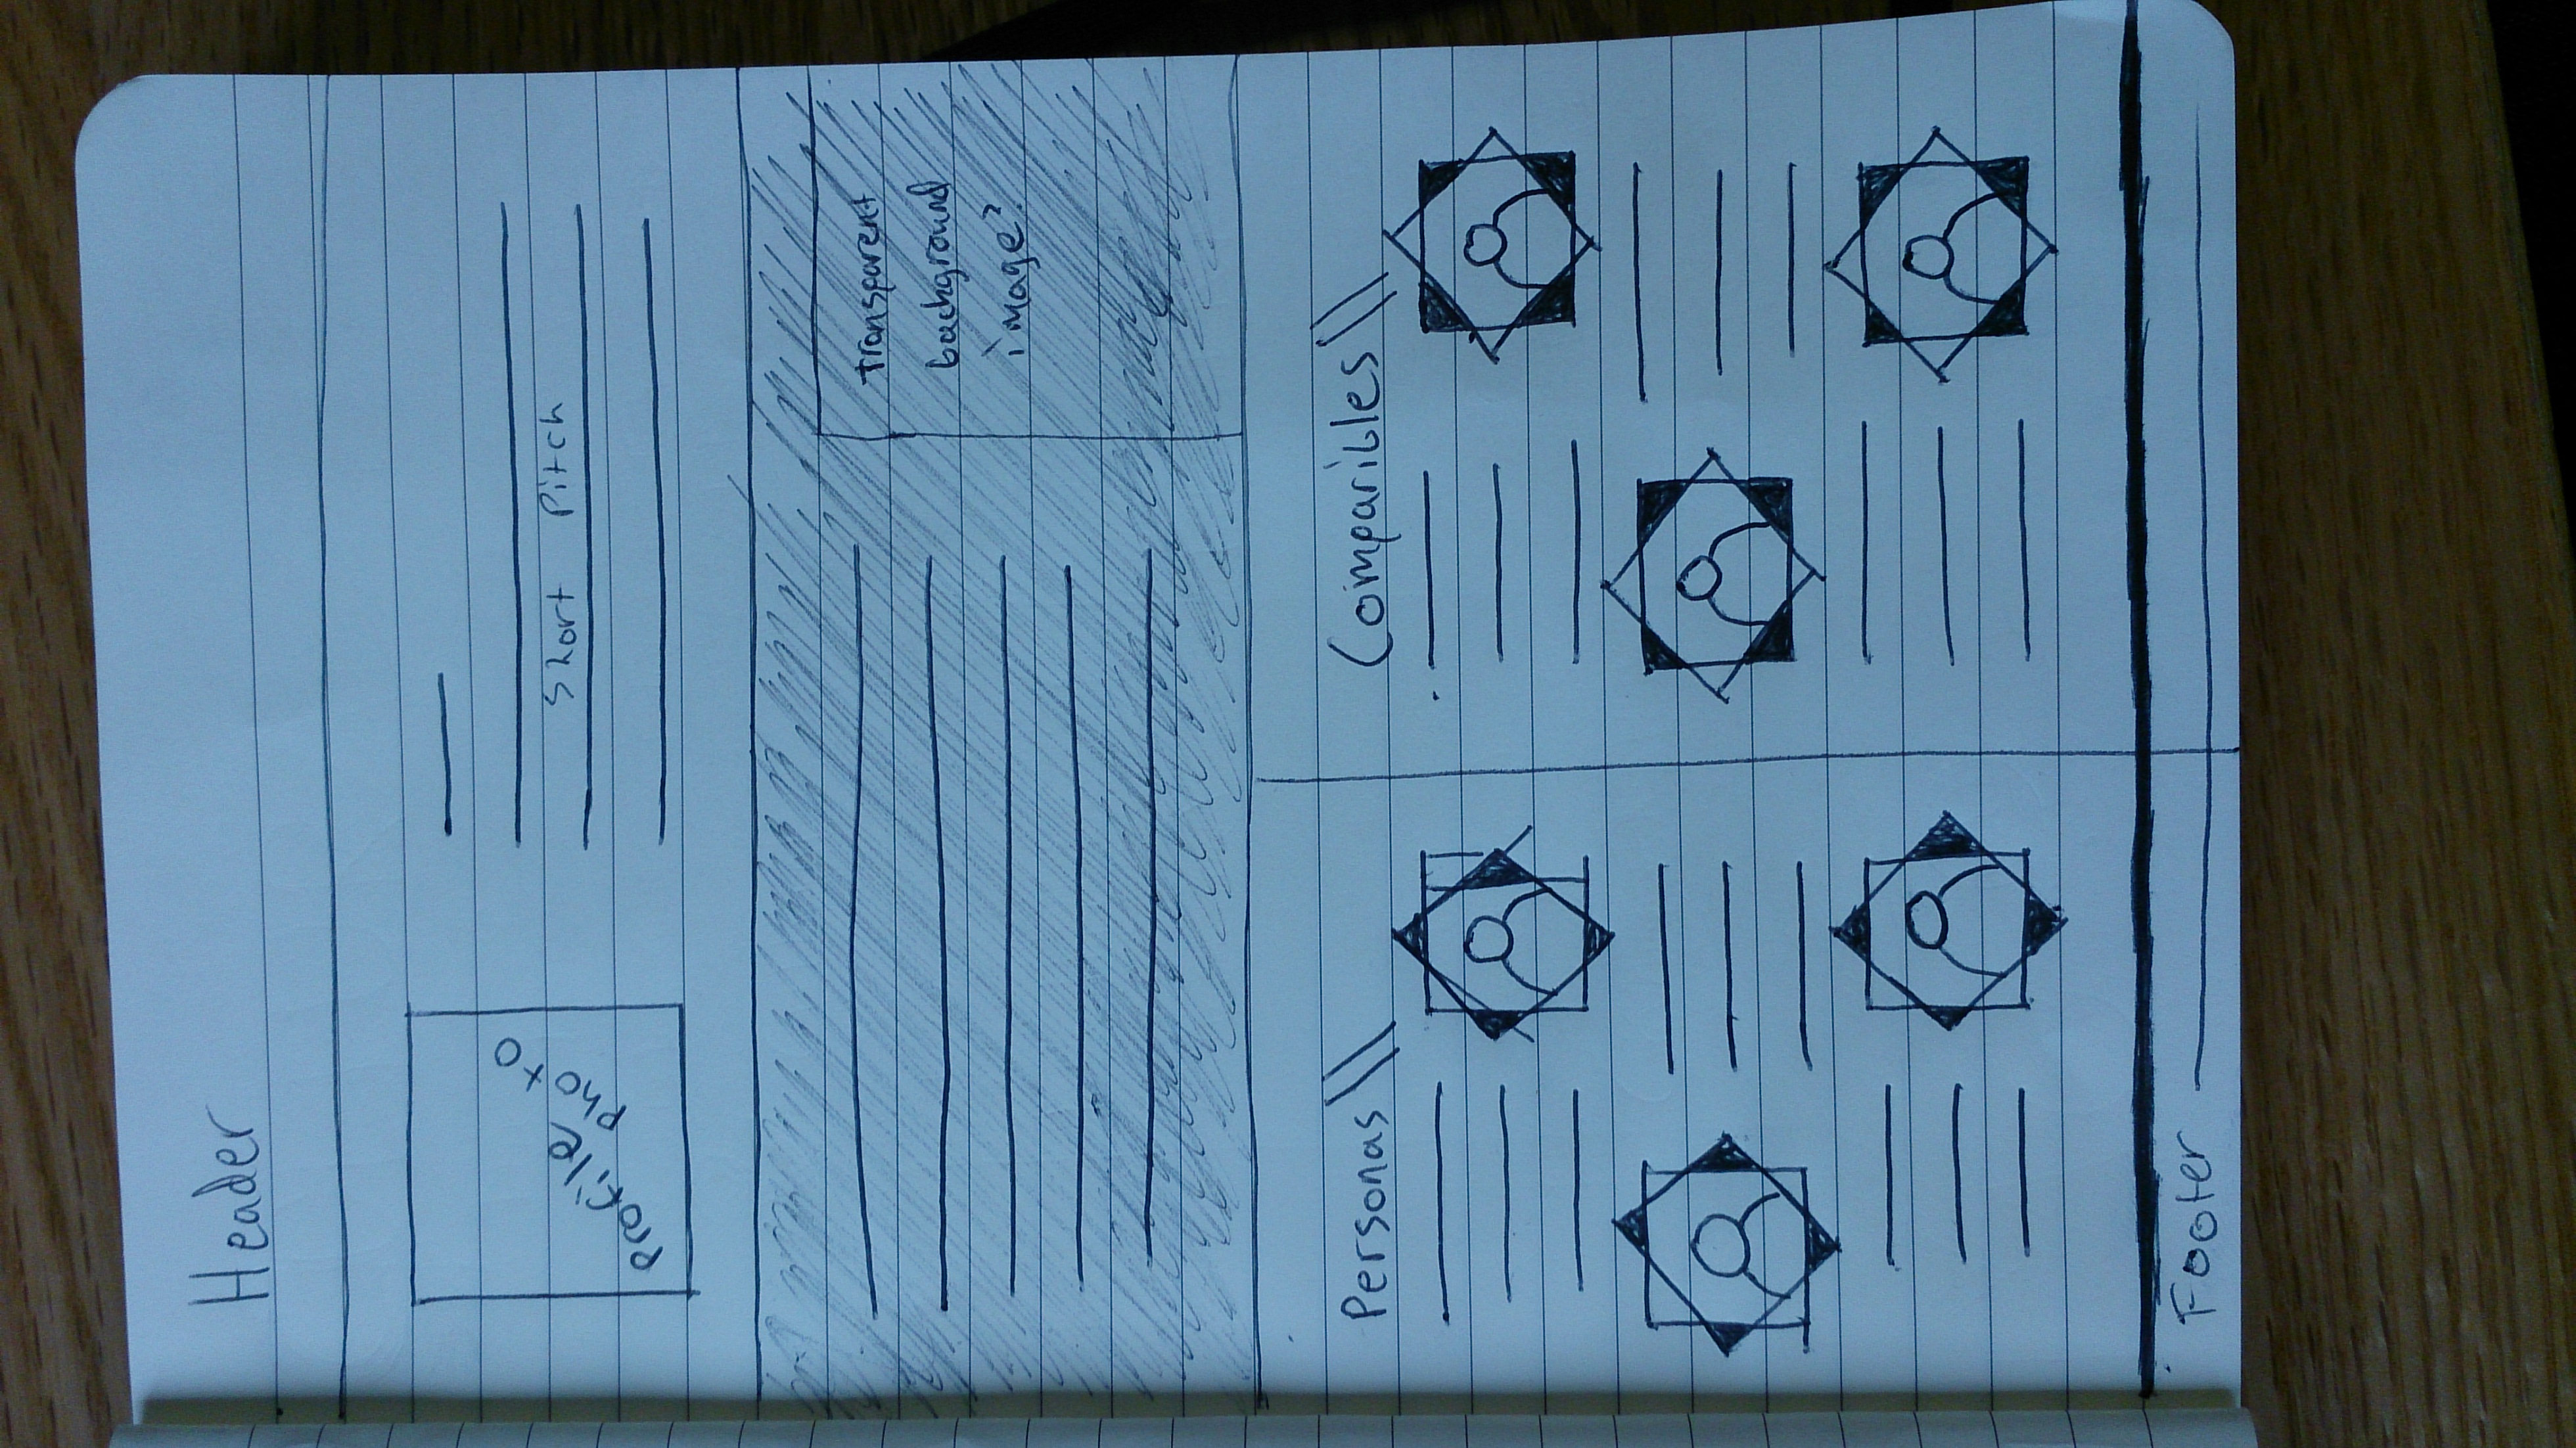 Header
Profile
Photo
Short Pitch
transparent
background
image?
Personas \\
Comparibles \\
Footer